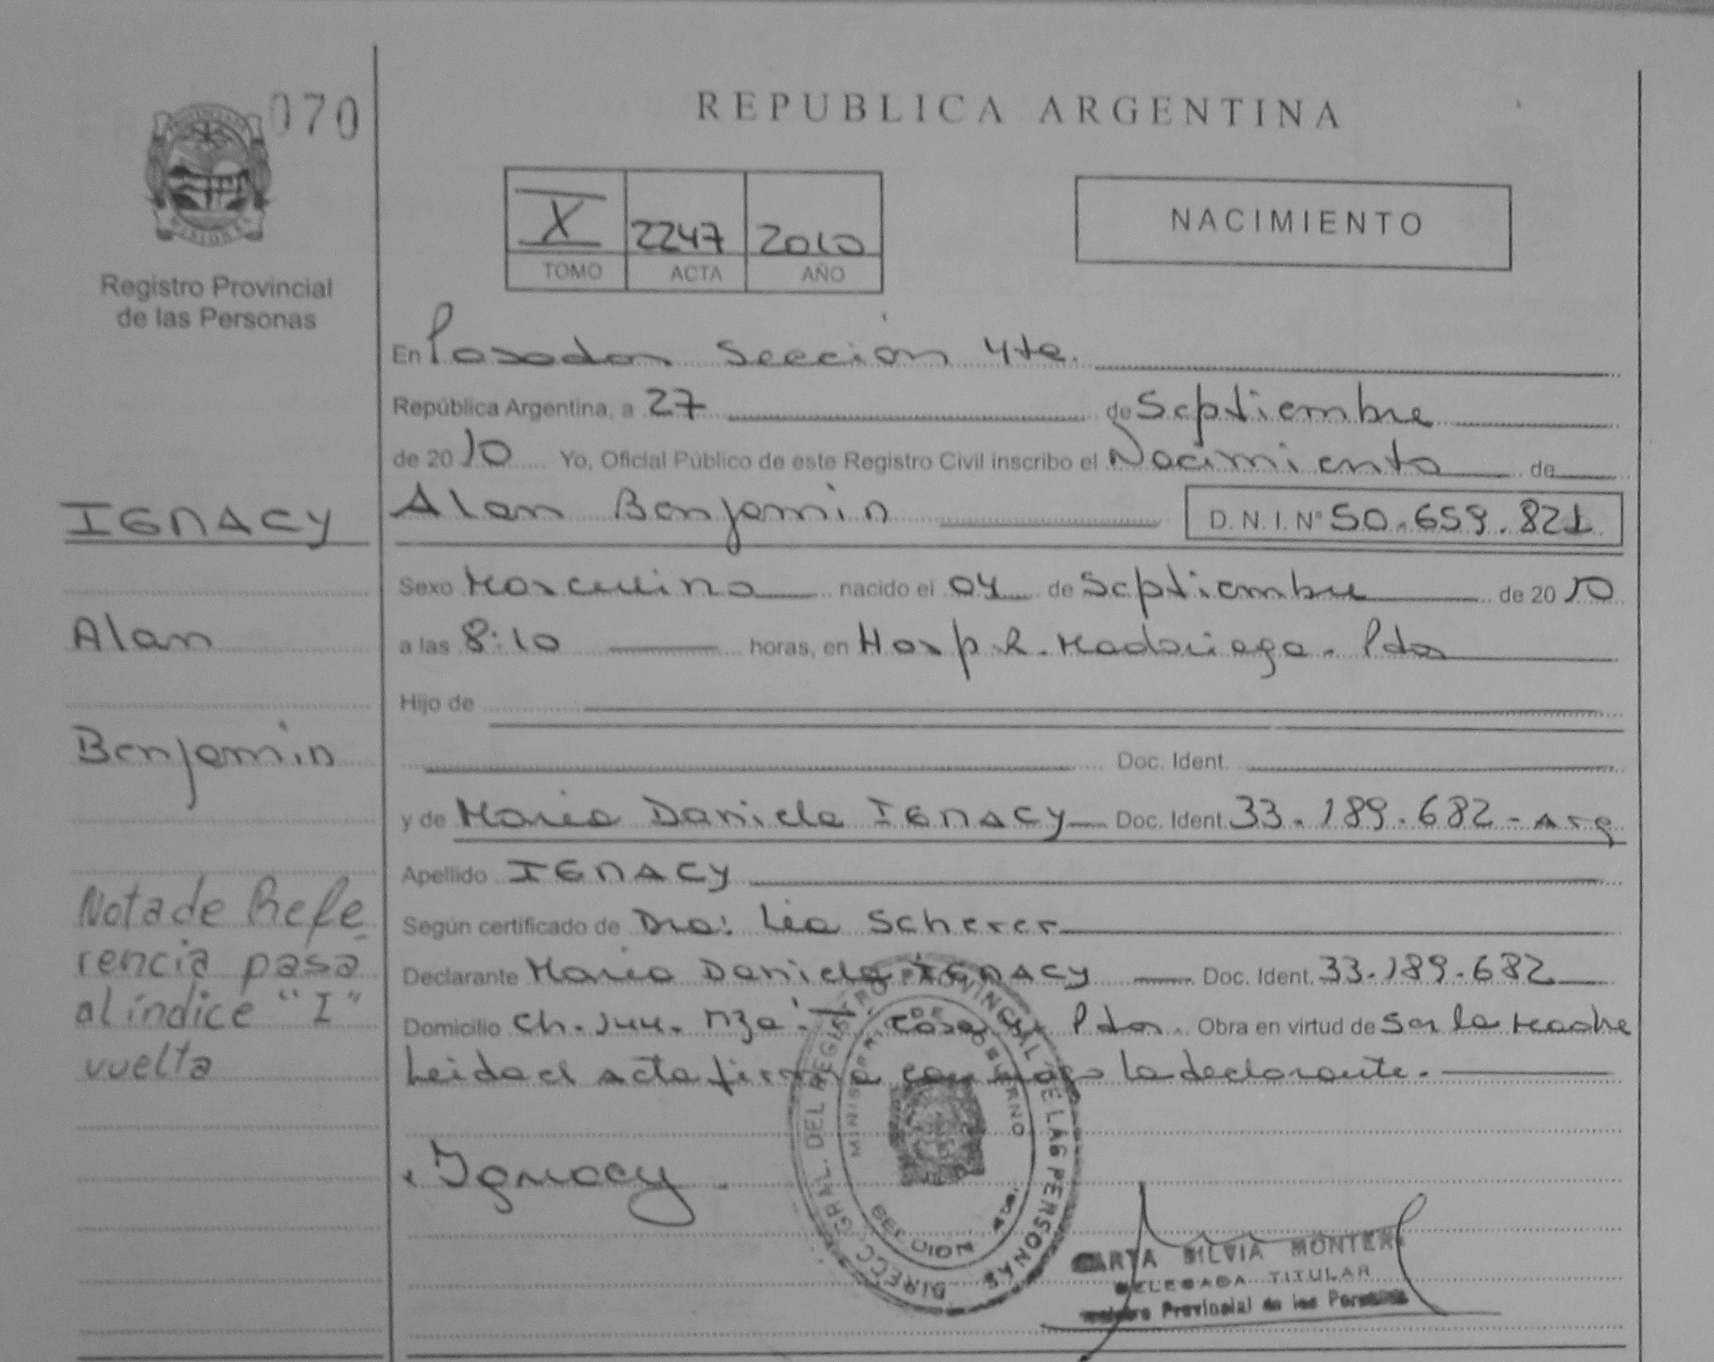 070
REPUBLICA ARGENTINA
X 2247 2010
TOMO ACTA AÑO
NACIMIENTO
Registro Provincial
de las Personas
En Posadas Sección 4ta.
República Argentina, a 27 de Septiembre
de 2010 Yo, Oficial Público de este Registro Civil inscribo el Nacimiento de
IGNACY
Alan Benjamin D.N.I. Nº 50.659.821
Sexo Masculino nacido el 04 de Septiembre de 2010
Alan
a las 8:10 horas, en Hosp. R. Madariaga. Pdas
Hijo de
Benjamin
Doc. Ident.
y de Maria Daniela IGNACY Doc. Ident. 33.189.682 - Arg
Apellido IGNACY
Nota de Refe
rencia pasa
al índice "I"
vuelta
Según certificado de Dra: Lia Scherer
Declarante Maria Daniela IGNACY Doc. Ident. 33.189.682
Domicilio Ch. Mza: Casa Pdas. Obra en virtud de Ser la Madre
Leida el acta firma la declarante.
Ignacy
DIRECC. GRAL. DEL REGISTRO PROVINCIAL DE LAS PERSONAS
MINISTERIO DE GOBIERNO
SILVIA
DELEGADA TITULAR
Registro Provincial de las Personas